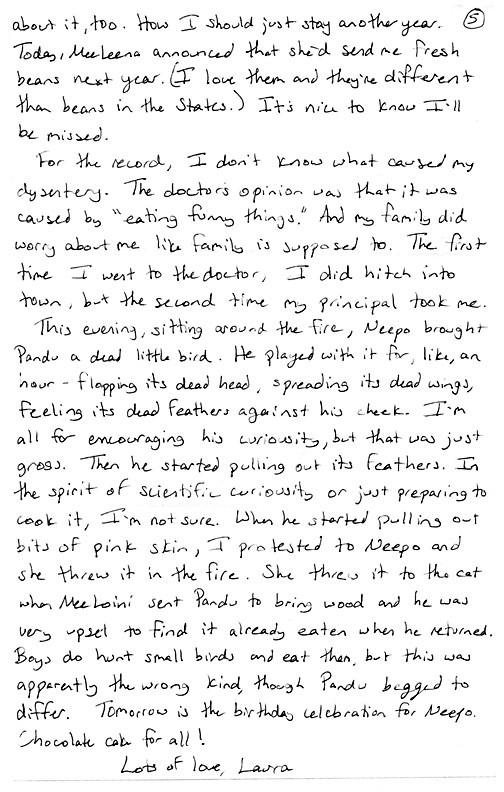 about it, too. How I should just stay another year. 5
Today, MeeLeena announced that she'd send me fresh
beans next year. (I love them and they're different
than beans in the States.) It's nice to know I'll
be missed.
For the record, I don't know what caused my
dysentery. The doctor's opinion was that it was
caused by "eating funny things." And my family did
worry about me like family is supposed to. The first
time I went to the doctor, I did hitch into
town, but the second time my principal took me.
This evening, sitting around the fire, Neepo brought
Pandu a dead little bird. He played with it for, like, an
hour - flapping its dead head, spreading its dead wings,
feeling its dead feathers against his cheek. I'm
all for encouraging his curiousity, but that was just
gross. Then he started pulling out its feathers. In
the spirit of scientific curiousity or just preparing to
cook it, I'm not sure. When he started pulling out
bits of pink skin, I protested to Neepo and
she threw it in the fire. She threw it to the cat
when MeeLoini sent Pandu to bring wood and he was
very upset to find it already eaten when he returned.
Boys do hunt small birds and eat them, but this was
apparently the wrong kind, though Pandu begged to
differ. Tomorrow is the birthday celebration for Neepo.
Chocolate cake for all!
Lots of love, Laura